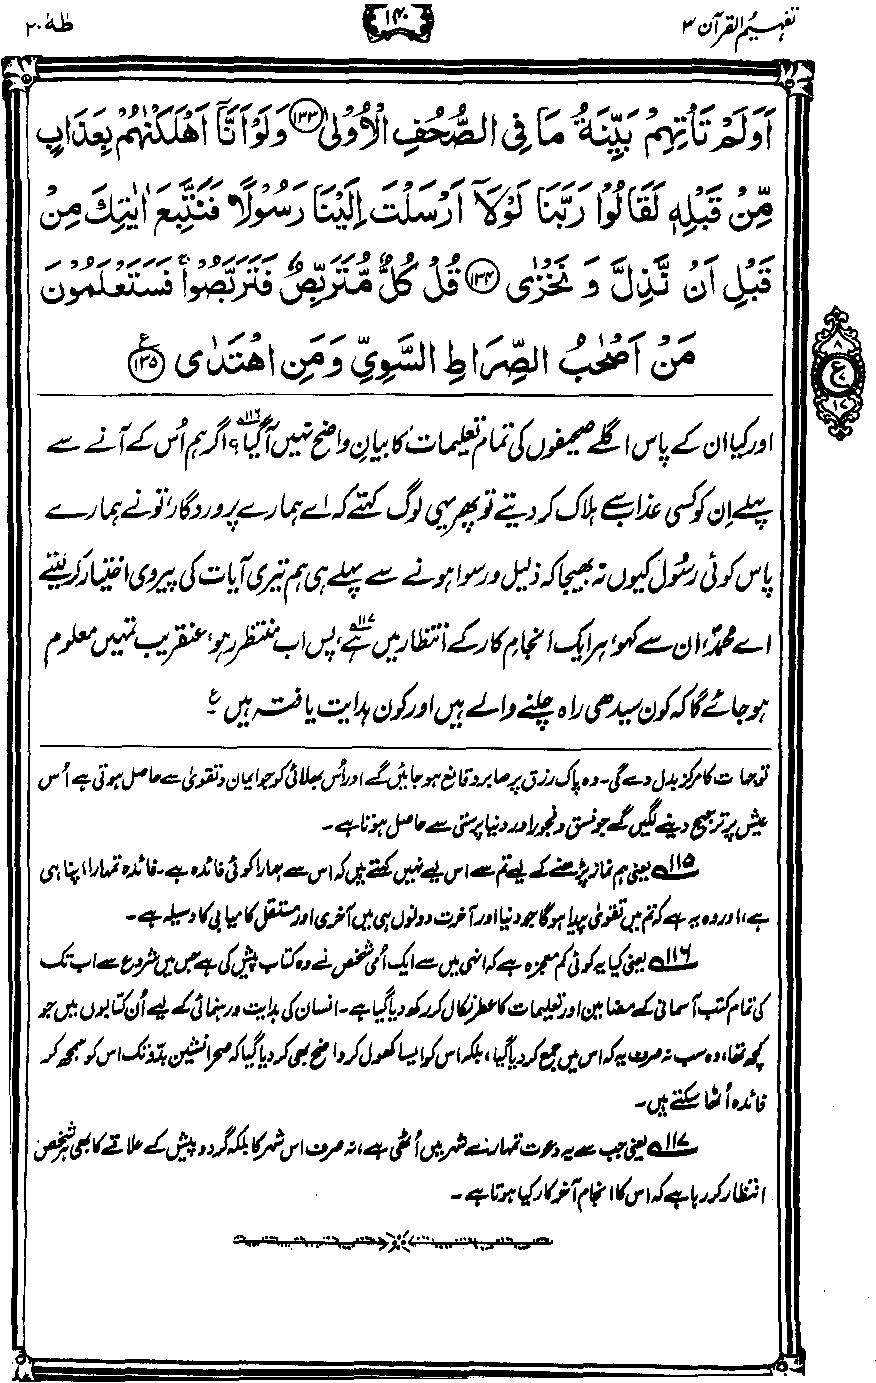 تفہیم القرآن ۳
۱۴۰
طٰہٰ ۲۰
اَوَلَمْ تَاْتِهِمْ بَيِّنَةُ مَا فِي الصُّحُفِ الْاُوْلٰى ﴿۱۳۳﴾ وَلَوْ اَنَّاۤ اَهْلَكْنٰهُمْ بِعَذَابٍ
مِّنْ قَبْلِهٖ لَقَالُوْا رَبَّنَا لَوْلَاۤ اَرْسَلْتَ اِلَيْنَا رَسُوْلًا فَنَتَّبِعَ اٰيٰتِكَ مِنْ
قَبْلِ اَنْ نَّذِلَّ وَ نَخْزٰى ﴿۱۳۴﴾ قُلْ كُلٌّ مُّتَرَبِّصٌ فَتَرَبَّصُوْا ۚ فَسَتَعْلَمُوْنَ
مَنْ اَصْحٰبُ الصِّرَاطِ السَّوِيِّ وَمَنِ اهْتَدٰى ﴿۱۳۵﴾ ع
۸
ع
۷
۱۷
اور کیا ان کے پاس اگلے صحیفوں کی تمام تعلیمات کا بیانِ واضح نہیں آگیا؟۱۱۶ اگر ہم اُس کے آنے سے
پہلے اِن کو کسی عذاب سے ہلاک کر دیتے تو پھر یہی لوگ کہتے کہ اے ہمارے پروردگار، تو نے ہمارے
پاس کوئی رسُول کیوں نہ بھیجا کہ ذلیل و رسوا ہونے سے پہلے ہی ہم تیری آیات کی پیروی اختیار کر لیتے
اے محمدؐ، ان سے کہو، ہر ایک انجامِ کار کے انتظار میں ہے،۱۱۷ پس اب منتظر رہو، عنقریب تمہیں معلوم
ہو جائے گا کہ کون سیدھی راہ چلنے والے ہیں اور کون ہدایت یافتہ ہیں ع
توجہات کا مرکز بدل دے گی۔ وہ پاک رزق پر صابر و قانع ہو جائیں گے اور اُس بھلائی کو جو ایمان و تقویٰ سے حاصل ہوتی ہے اُس
عیش پر ترجیح دینے لگیں گے جو فسق و فجور اور دنیا پرستی سے حاصل ہوتا ہے۔
۱۱۵ یعنی ہم نماز پڑھنے کے لیے تم سے اس لیے نہیں کہتے ہیں کہ اس سے ہمارا کوئی فائدہ ہے۔ فائدہ تمہارا اپنا ہی
ہے، اور وہ یہ ہے کہ تم میں تقویٰ پیدا ہوگا جو دنیا اور آخرت دونوں ہی میں آخری اور مستقل کامیابی کا وسیلہ ہے۔
۱۱۶ یعنی کیا یہ کوئی کم معجزہ ہے کہ انہی میں سے ایک اُمی شخص نے وہ کتاب پیش کی ہے جس میں شروع سے اب تک
کی تمام کتب آسمانی کے مضامین اور تعلیمات کا عطر نکال کر رکھ دیا گیا ہے۔ انسان کی ہدایت و رہنمائی کے لیے اُن کتابوں میں جو
کچھ تھا، وہ سب نہ صرف یہ کہ اس میں جمع کر دیا گیا، بلکہ اس کو ایسا کھول کر واضح بھی کر دیا گیا کہ صحرا نشین بدّو تک اس کو سمجھ کر
فائدہ اُٹھا سکتے ہیں۔
۱۱۷ یعنی جب سے یہ دعوت تمہارے شہر میں اُٹھی ہے، نہ صرف اس شہر کا بلکہ گرد و پیش کے علاقے کا بھی ہر شخص
انتظار کر رہا ہے کہ اس کا انجام آخر کار کیا ہوتا ہے۔